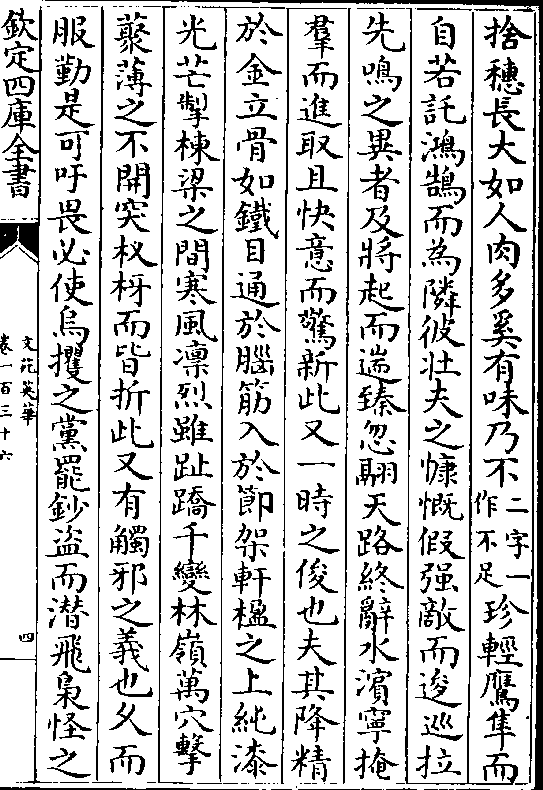 捨穗長大如人肉多奚有味乃不二字一作不足珍輕鷹隼而
自若託鴻鵠而為隣彼壯夫之慷慨假强敵而逡巡拉
先鳴之異者及將起而遄臻忽翮天路終辭水濱寧掩
羣而進取且快意而驚新此又一時之俊也夫其降精
於金立骨如鐵目通於腦筋入於節架軒楹之上純漆
光芒掣棟梁之間寒風凛烈雖趾蹻千變林嶺萬穴擊
藂薄之不開突杈枒而皆折此又有觸邪之義也夂而
服勤是可吁畏必使烏攫之黨罷鈔盜而潛飛梟怪之
欽定四庫全書
文苑英華
卷一百三十六
四